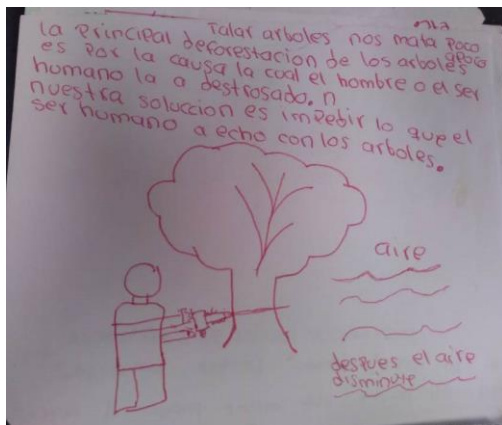 Talar arboles nos mata poco
apoco
la principal deforestacion de los arboles
es por la causa la cual el hombre o el ser
humano la a destrosado. n
nuestra soluccion es impedir lo que el
ser humano a echo con los arboles.
aire
despues el aire
disminuye